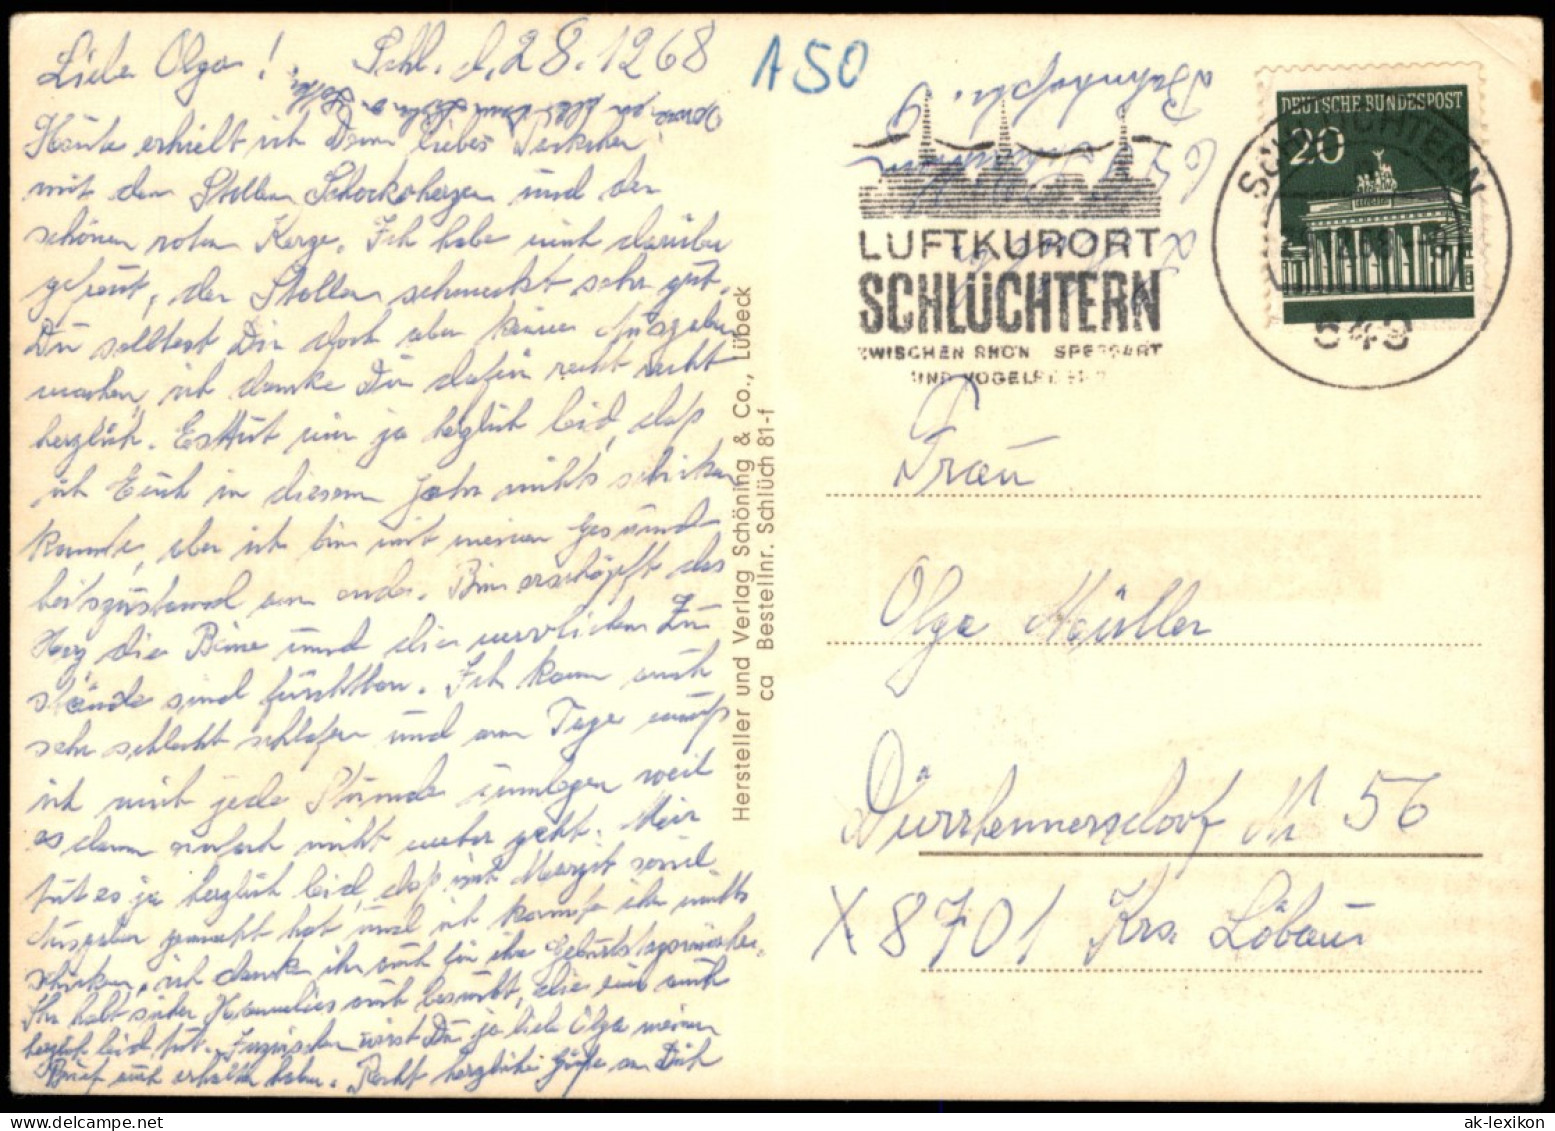 Liebe Olga! Schl. d. 28.12 68
Heute erhielt ich Dein liebes Päckchen
mit dem Stollen Schockoherzen und der
schönen roten Kerze. Ich habe mich darüber
gefreut, der Stollen schmeckt sehr gut.
Du solltest Dir doch aber keine Ausgaben
machen, ich danke Dir dafür recht recht
herzlich. Es tut mir ja herzlich leid, daß
ich Euch in diesem Jahr nichts schicken
konnte, aber ich bin mit meinen Gesund-
heitszustand am ende. Bin erschöpft das
Herz die Beine und die nervlichen Zu
stände sind furchtbar. Ich kann auch
sehr schlecht schlafen und am Tage muß
ich mich jede Stunde hinlegen weil
es dann einfach nicht weiter geht. Mir
tut es ja herzlich leid, daß mit Margit soviel
Ausgaben gemacht hat, und ich konnte ihr nichts
schicken, ich danke ihr auch für ihre Geburtstagswünsche.
Ihr habt sicher Hannelies auch besucht, die mir auch
herzlich leid tut. Inzwischen wirst Du ja liebe Olga meinen
Brief auch erhalten haben. Recht herzliche Grüße an Dich
Hersteller und Verlag Schöning & Co., Lübeck
ca Bestellnr. Schlüch 81-f
A 50
Bahnhofstr. 9
LUFTKURORT
SCHLÜCHTERN
ZWISCHEN RHÖN SPESSART
UND VOGELSBERG
DEUTSCHE BUNDESPOST
20
SCHLÜCHTERN
649
Frau
Olga Müller
Dürrhennersdorf Nr 56
X 8701 Krs. Löbau
ak-lexikon